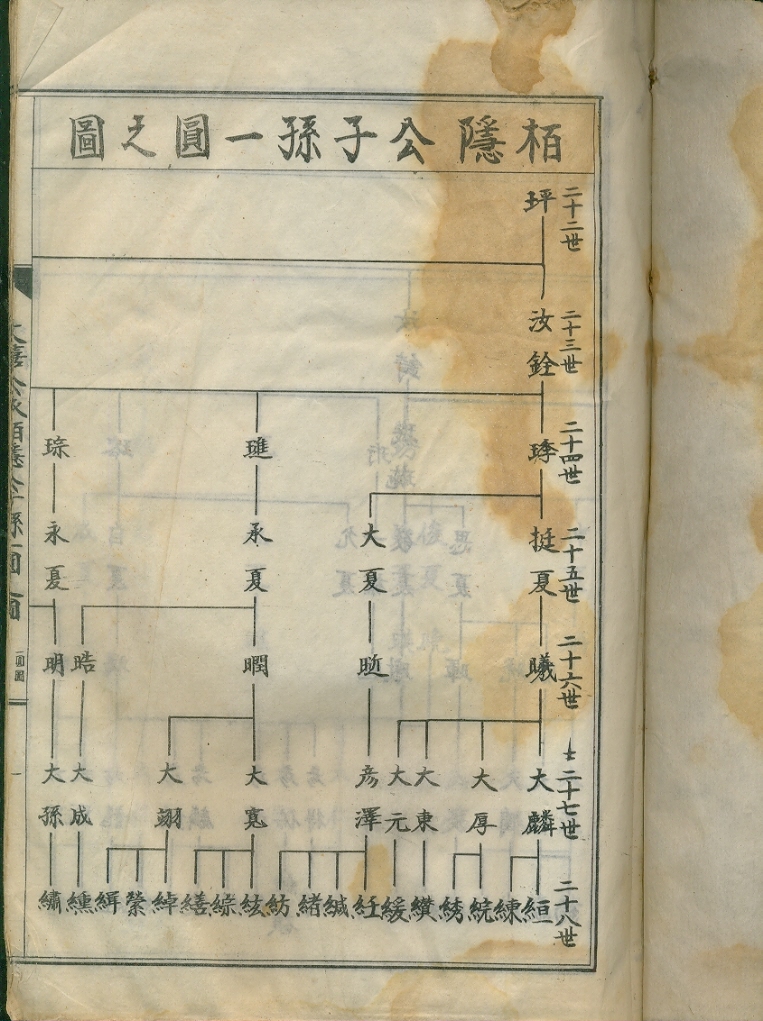 栢隱公子孫一圓之圖
二十二世
坪
二十三世
汝銓
二十四世
琒 璡 琮
二十五世
挺夏 大夏 承夏 永夏
二十六世
曦 晅 晭 晧 明
二十七世
大麟 大厚 大東 大元 彦澤 大寬 大翊 大成 大孫
二十八世
絙 練 綂 綉 纘 緩 紝 緘 緒 紡 紘 綜 繕 綽 縈 緝 纁 繡